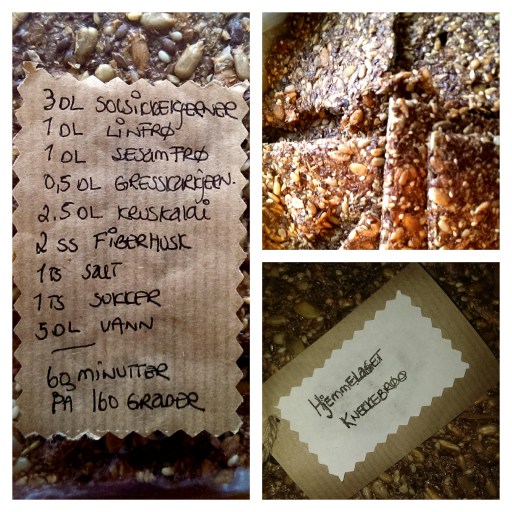 3 DL SOLSIKKEKJERNER
1 DL LINFRØ
1 DL SESAMFRØ
0,5 DL GRESSKARKJERN.
2,5 DL KRUSKAKLI
2 SS FIBERHUSK
1 TS SALT
1 TS SUKKER
5 DL VANN
60 MINUTTER
PÅ 160 GRADER
HJEMMELAGET
KNEKKEBRØD